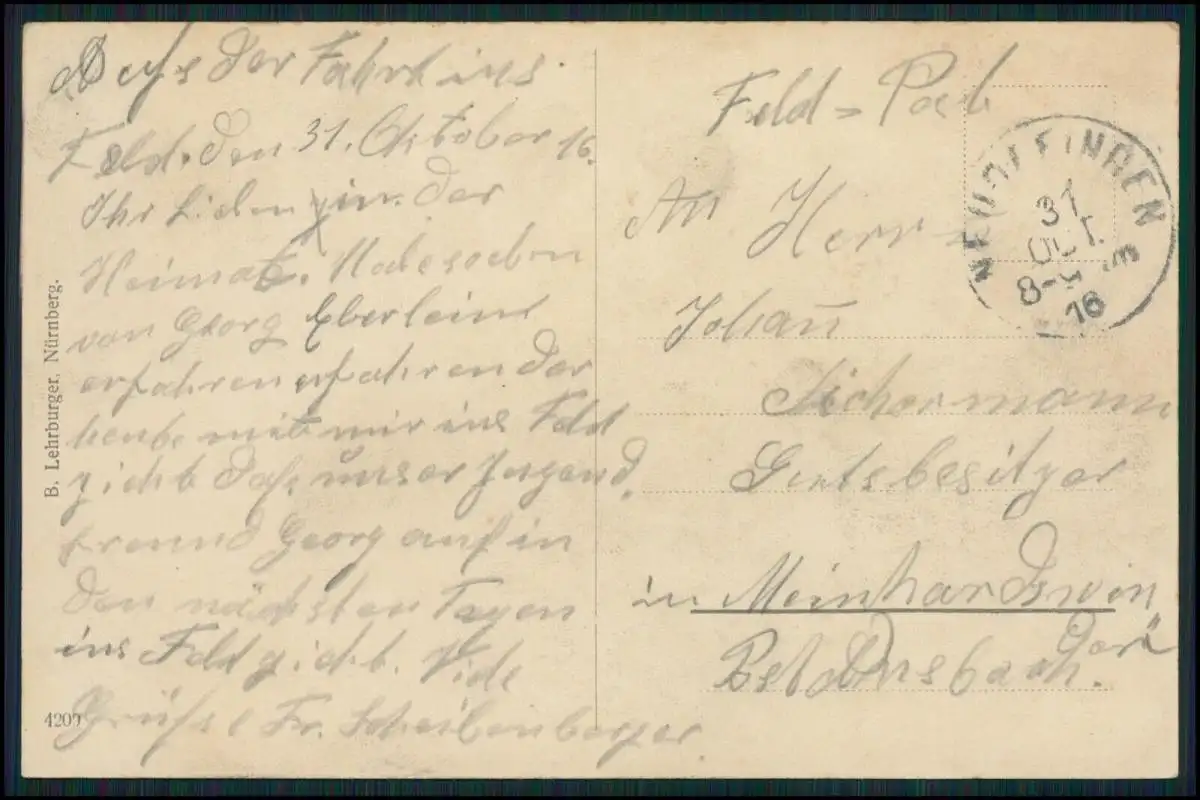 Auf der Fahrt ins
Feld. den 31. Oktober 16.
Ihr Lieben in der
Heimat. Habe soeben
von Georg Eberlein
erfahren erfahren der
heute mit mir ins Feld
zieht daß unser Jugend
freund Georg auf in
den nächsten Tagen
ins Feld zieht. Viele
Grüße Fr. Scheibenberger
B. Lehrburger, Nürnberg.
4209
Feld = Post
31
OCT.
8-9
16
An Herr
Johann
Aichermann
Gutsbesitzer
in Meinhardswin
dorf
Pst Dnsbach.